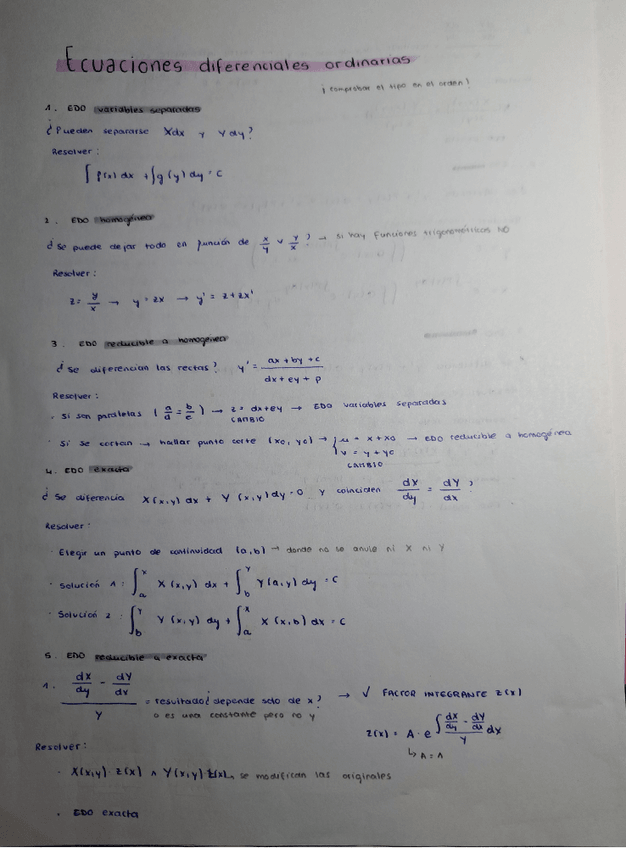 Ecuaciones diferenciales ordinarias
¡comprobar el tipo en el orden!
1. EDO variables separadas
¿Pueden separarse Xdx y Ydy?
Resolver:
∫ f(x) dx + ∫ g(y) dy = C
2. EDO homogénea
¿Se puede dejar todo en función de x/y v y/x? → si hay funciones trigonométricas NO
Resolver:
z = y/x → y = zx → y' = z + zx'
3. EDO reducible a homogénea
¿Se diferencian las rectas? y' = (ax + by + c)/(dx + ey + p)
Resolver:
· Si son paralelas (a/d = b/e) → z = dx + ey → EDO variables separadas
CAMBIO
· Si se cortan → hallar punto corte (x0, y0) → { u = x + x0 → EDO reducible a homogénea
v = y + y0
CAMBIO
4. EDO exacta
¿Se diferencia X(x,y) dx + Y(x,y) dy = 0 y coinciden dX/dy = dY/dx?
Resolver:
· Elegir un punto de continuidad (a,b) → donde no se anule ni X ni Y
· Solución 1: ∫_a^x X(x,y) dx + ∫_b^y Y(a,y) dy = C
· Solución 2: ∫_b^y Y(x,y) dy + ∫_a^x X(x,b) dx = C
5. EDO reducible a exacta
1. (dX/dy - dY/dx)/Y = resultado ¿depende solo de x? → √ FACTOR INTEGRANTE z(x)
o es una constante pero no y
z(x) = A · e^∫ (dX/dy - dY/dx)/Y dx
↳ A = 1
Resolver:
· X(x,y) · z(x) ∧ Y(x,y) z(x) → se modifican las originales
· EDO exacta